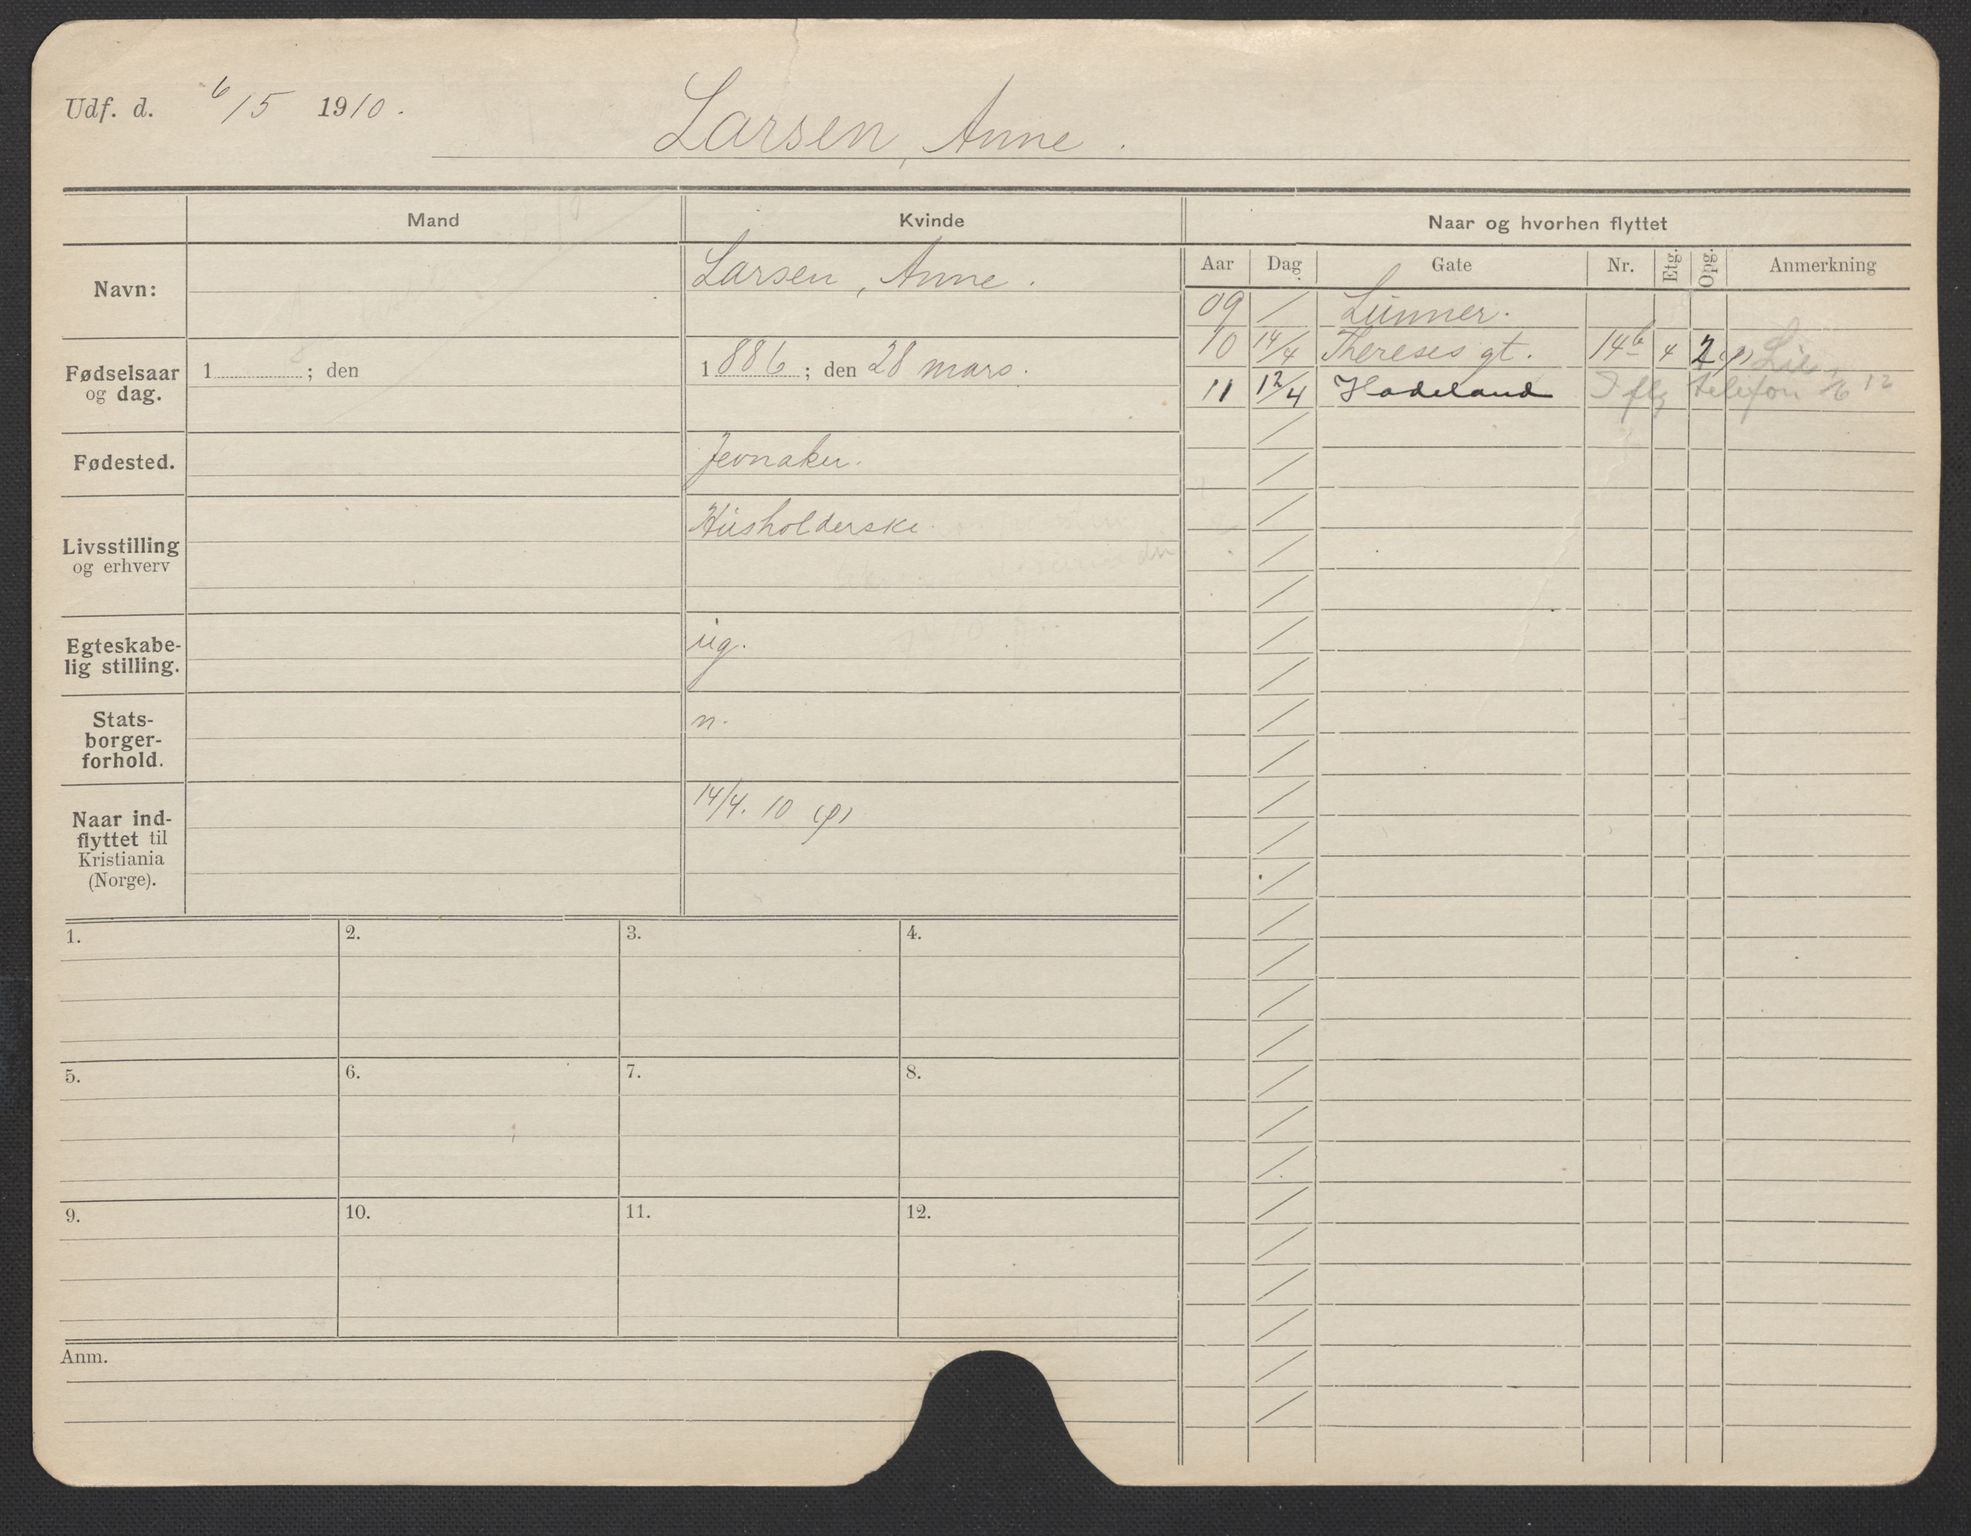 Udf. d. 6/5 1910.
Larsen, Anne.
Mand
Kvinde
Naar og hvorhen flyttet
Aar Dag Gate Nr. Etg. Opg. Anmerkning
Navn:
Larsen, Anne.
09 / Lunner.
10 14/4 Thereses gt. 14b 4 2 (φ) Lie
11 12/4 Hadeland I flg telefon 1/6 12
Fødselsaar
og dag.
1 ; den
1886 ; den 28 mars.
Fødested.
Jevnaker.
Livsstilling
og erhverv
Husholderske.
Egteskabe-
lig stilling.
ug.
Stats-
borger-
forhold.
n.
Naar ind-
flyttet til
Kristiania
(Norge).
14/4. 10 (φ)
1. 2. 3. 4.
5. 6. 7. 8.
9. 10. 11. 12.
Anm.